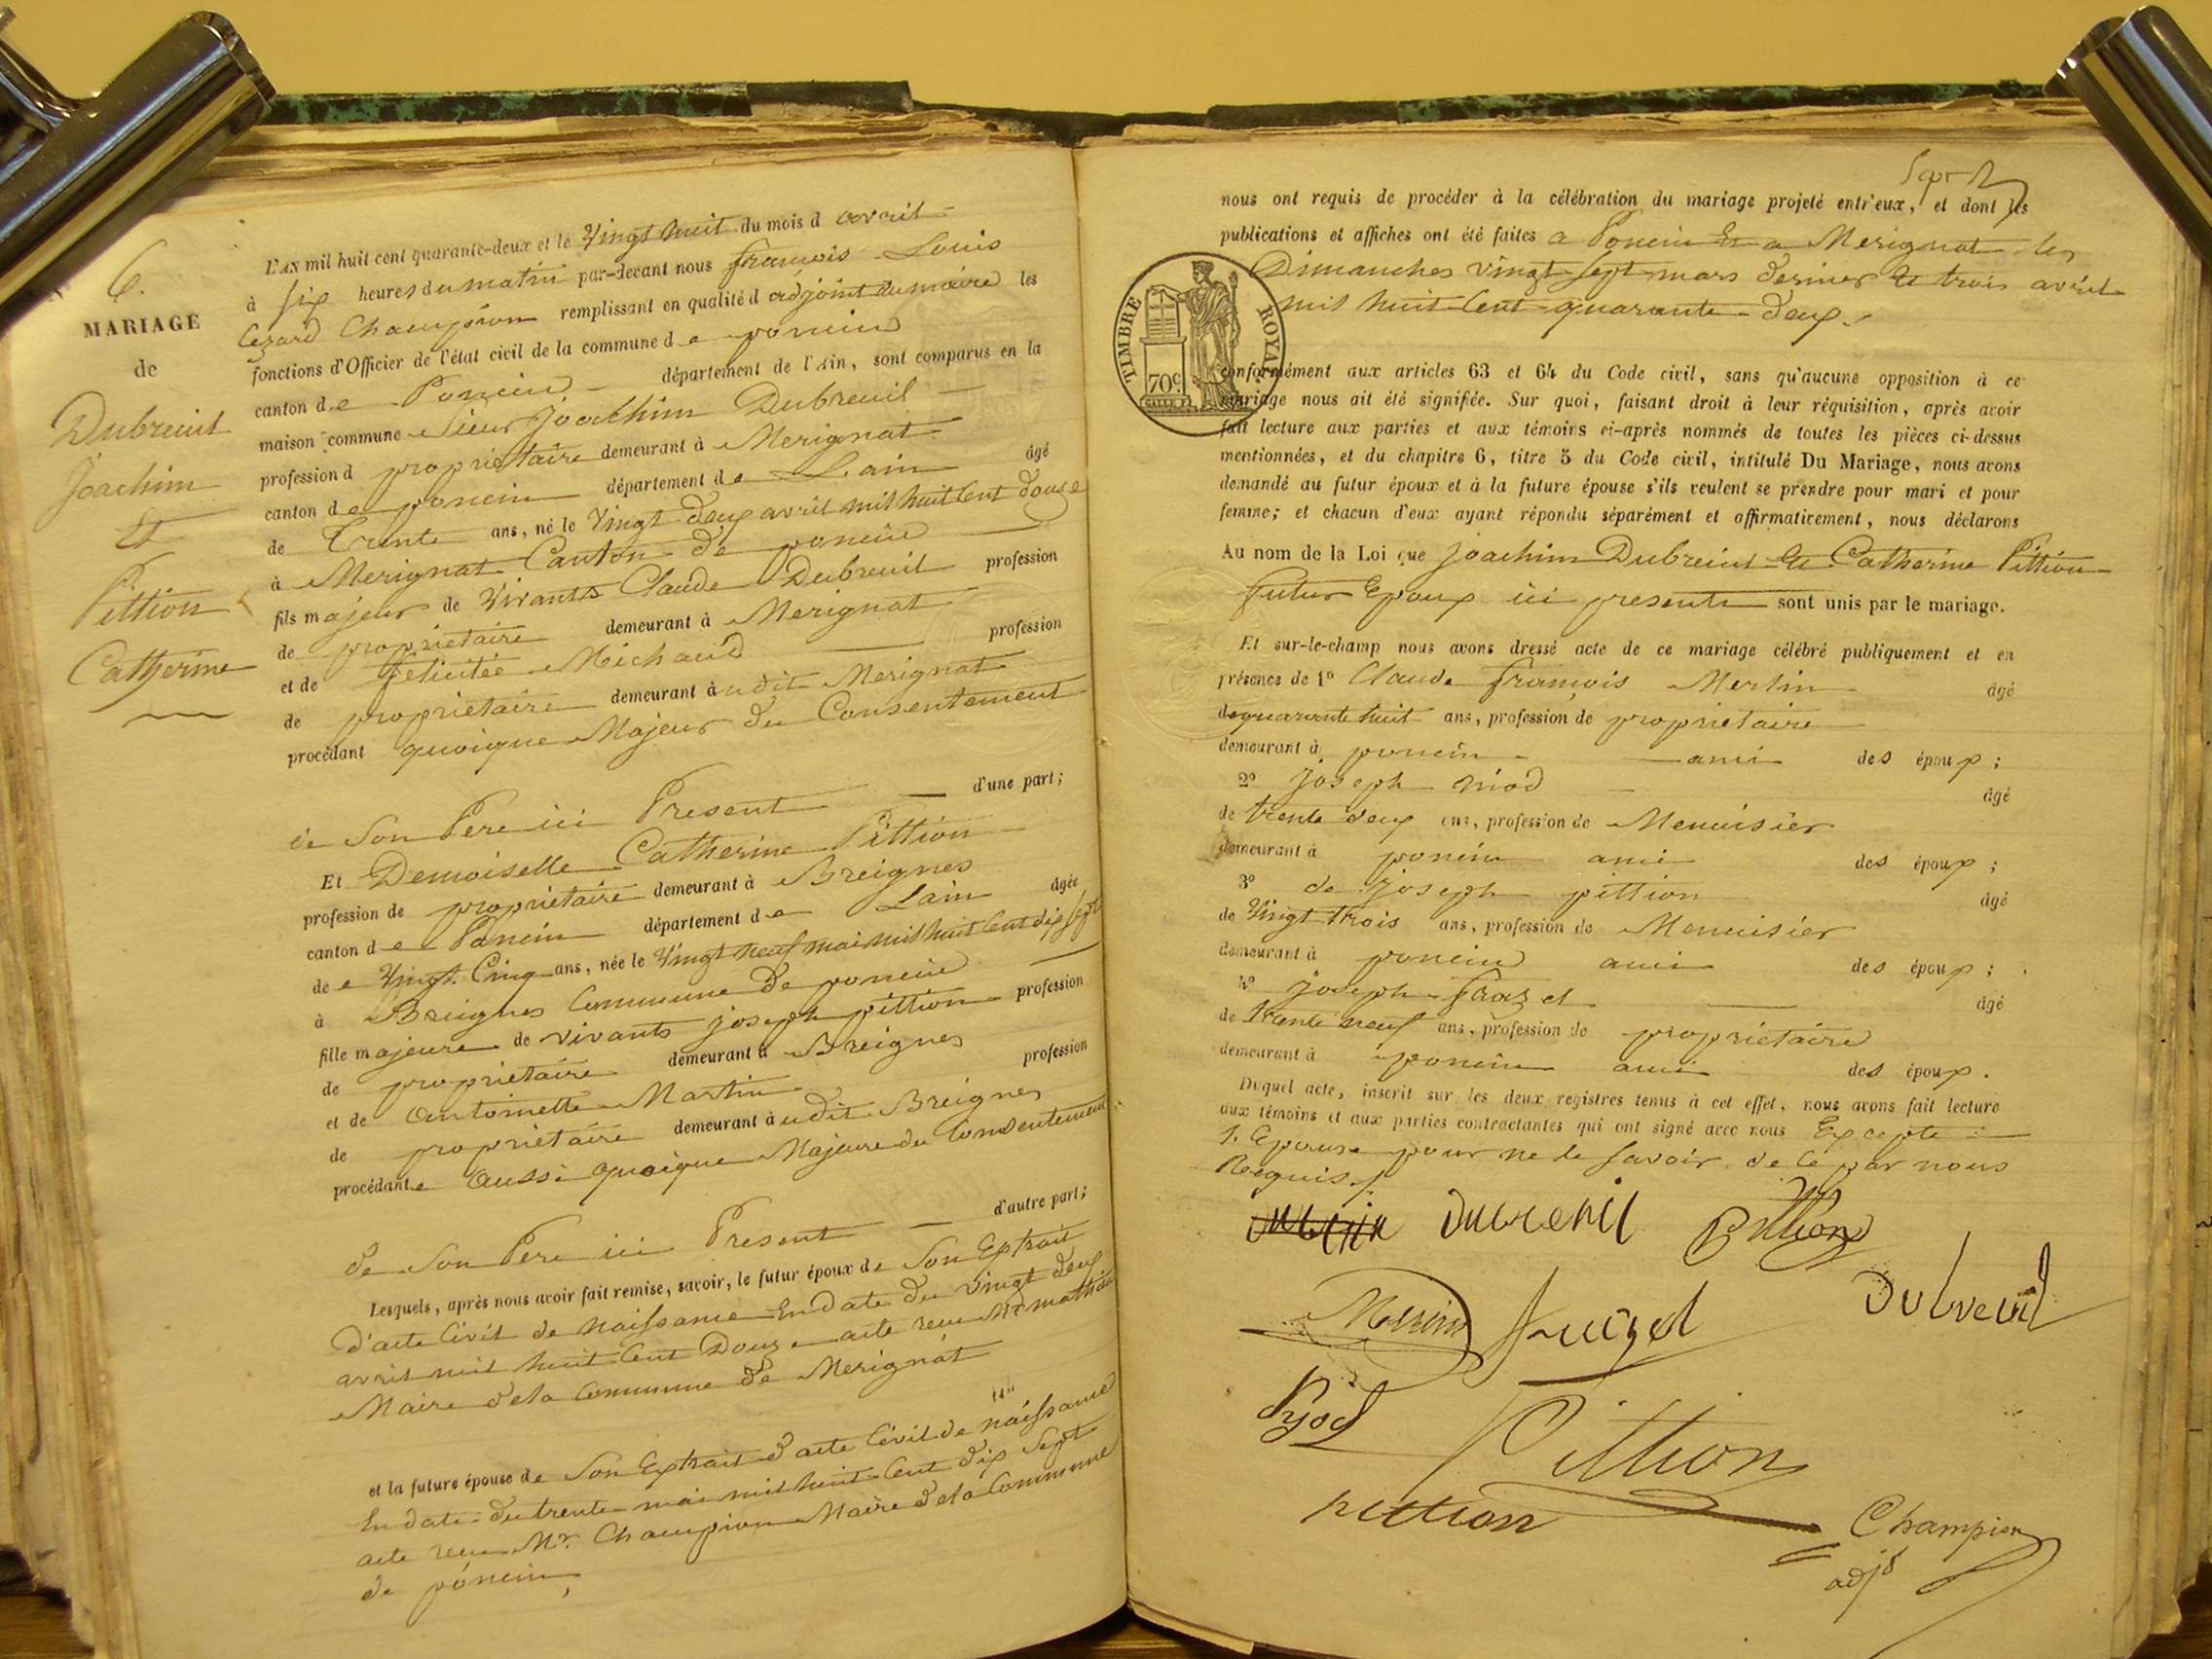 6.
MARIAGE
de
Dubreuil
Joachim
Et
Pittion
Catherine
L'AN mil huit cent quarante-deux et le Vingt huit du mois d avril
à six heures du matin par-devant nous françois Louis
Cezard Champion remplissant en qualité d adjoint du maire les
fonctions d'Officier de l'état civil de la commune de poncin
canton de Poncin département de l'Ain, sont comparus en la
maison commune Sieur Joachim Dubreuil
profession d propriétaire demeurant à Merignat
canton de poncin département de L'ain âgé
de Trente ans, né le Vingt deux avril mil huit Cent douze
à Merignat Canton de poncin
fils majeur de Vivants Claude Dubreuil profession
de propriétaire demeurant à Merignat
et de felicitée Michaud profession
de propriétaire demeurant àudit Merignat
procédant quoique Majeur du Consentement
de Son Pere ici Present d'une part;
Et Demoiselle Catherine Pittion
profession de propriétaire demeurant à Breignes
canton de Poncin département de Lain âgée
de Vingt Cinq ans, née le Vingt neuf mai mil huit Cent dix Sept
à Breignes Commune de poncin
fille majeure de vivants joseph pittion profession
de propriétaire demeurant à Breignes
et de antoinette Martin profession
de propriétaire demeurant àudit Breignes
procédante aussi quoique Majeure du Consentement
de Son Pere ici Present d'autre part;
Lesquels, après nous avoir fait remise, savoir, le futur époux de Son Extrait
D'acte Civil de naissance En date du vingt deux
avril mil huit Cent Douze acte reçu Mr mathieu
Maire dela Commune de Merignat
et la future épouse de Son Extrait d'acte Civil de naissance
En date du trente mai mil huit Cent dix Sept
acte reçu Mr. Champion Maire dela Commune
de poncin
Sept
nous ont requis de procéder à la célébration du mariage projeté entr'eux, et dont les
publications et affiches ont été faites a Poncin Et a Merignat les
Dimanches vingt Sept mars dernier Et trois avril
mil huit Cent quarante deux.
TIMBRE ROYAL
70c.
conformément aux articles 63 et 64 du Code civil, sans qu'aucune opposition à ce
mariage nous ait été signifiée. Sur quoi, faisant droit à leur réquisition, après avoir
fait lecture aux parties et aux témoins ci-après nommés de toutes les pièces ci-dessus
mentionnées, et du chapitre 6, titre 5 du Code civil, intitulé Du Mariage, nous avons
demandé au futur époux et à la future épouse s'ils veulent se prendre pour mari et pour
femme; et chacun d'eux ayant répondu séparément et affirmativement, nous déclarons
Au nom de la Loi que Joachim Dubreuil Et Catherine Pittion
futur Epoux ici presents sont unis par le mariage.
Et sur-le-champ nous avons dressé acte de ce mariage célébré publiquement et en
présence de 1º Claude françois Merlin âgé
de quarante huit ans, profession de propriétaire
demeurant à poncin ami des époux;
2º Joseph niod âgé
de trente deux ans, profession de Menuisier
demeurant à poncin ami des époux;
3º de Joseph pittion âgé
de Vingt trois ans, profession de Menuisier
demeurant à poncin ami des époux;
4º Joseph frazet âgé
de trente neuf ans, profession de propriétaire
demeurant à poncin ami des époux.
Duquel acte, inscrit sur les deux registres tenus à cet effet, nous avons fait lecture
aux témoins et aux parties contractantes qui ont signé avec nous Excepté
l'Epouse pour ne le Savoir de Ce par nous
Requis.
Dubreuil Pittion
Dubreuil
Pittion
pittion
Champion
adjt